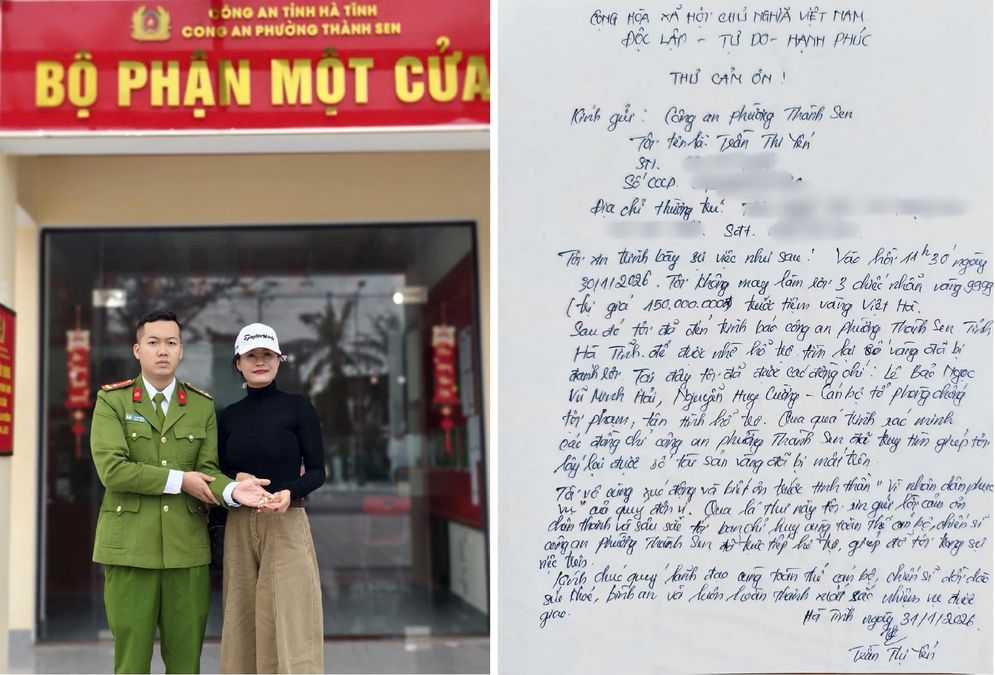 CÔNG AN TỈNH HÀ TĨNH
CÔNG AN PHƯỜNG THÀNH SEN
BỘ PHẬN MỘT CỬA
TaylorMade
CỘNG HÒA XÃ HỘI CHỦ NGHĨA VIỆT NAM
ĐỘC LẬP - TỰ DO - HẠNH PHÚC
THƯ CẢM ƠN!
Kính gửi: Công an phường Thành Sen
Tôi tên là: Trần Thị Yến
SN.
Số CCCD.
Địa chỉ thường trú:
Sđt.
Tôi xin trình bày sự việc như sau: Vào hồi 11h30 ngày
30/1/2026. Tôi không may làm rơi 3 chiếc nhẫn vàng 9999
(trị giá 150.000.000đ trước tiệm vàng Việt Hà.
Sau đó tôi đã đến trình báo công an phường Thành Sen Tỉnh
Hà Tĩnh để được nhờ hỗ trợ tìm lại số vàng đã bị
đánh rơi. Tại đây tôi đã được các đồng chí: Lê Bảo Ngọc
Vũ Minh Hải, Nguyễn Huy Cường - Cán bộ tổ phòng chống
tội phạm, tận tình hỗ trợ. Qua quá trình xác minh
các đồng chí công an phường Thành Sen đã truy tìm giúp tôi
lấy lại được số tài sản vàng đã bị mất trên.
Tôi vô cùng xúc động và biết ơn trước tinh thần "Vì nhân dân phục
vụ" của quý đơn vị. Qua lá thư này tôi xin gửi lời cảm ơn
chân thành và sâu sắc tới ban chỉ huy cùng toàn thể cán bộ, chiến sĩ
công an phường Thành Sen đã trực tiếp hỗ trợ, giúp đỡ tôi trong sự
việc trên.
Kính chúc quý lãnh đạo cùng toàn thể cán bộ, chiến sĩ dồi dào
sức khoẻ, bình an và luôn hoàn thành xuất sắc nhiệm vụ được
giao.
Hà Tĩnh ngày 31/1/2026.
Trần Thị Yến